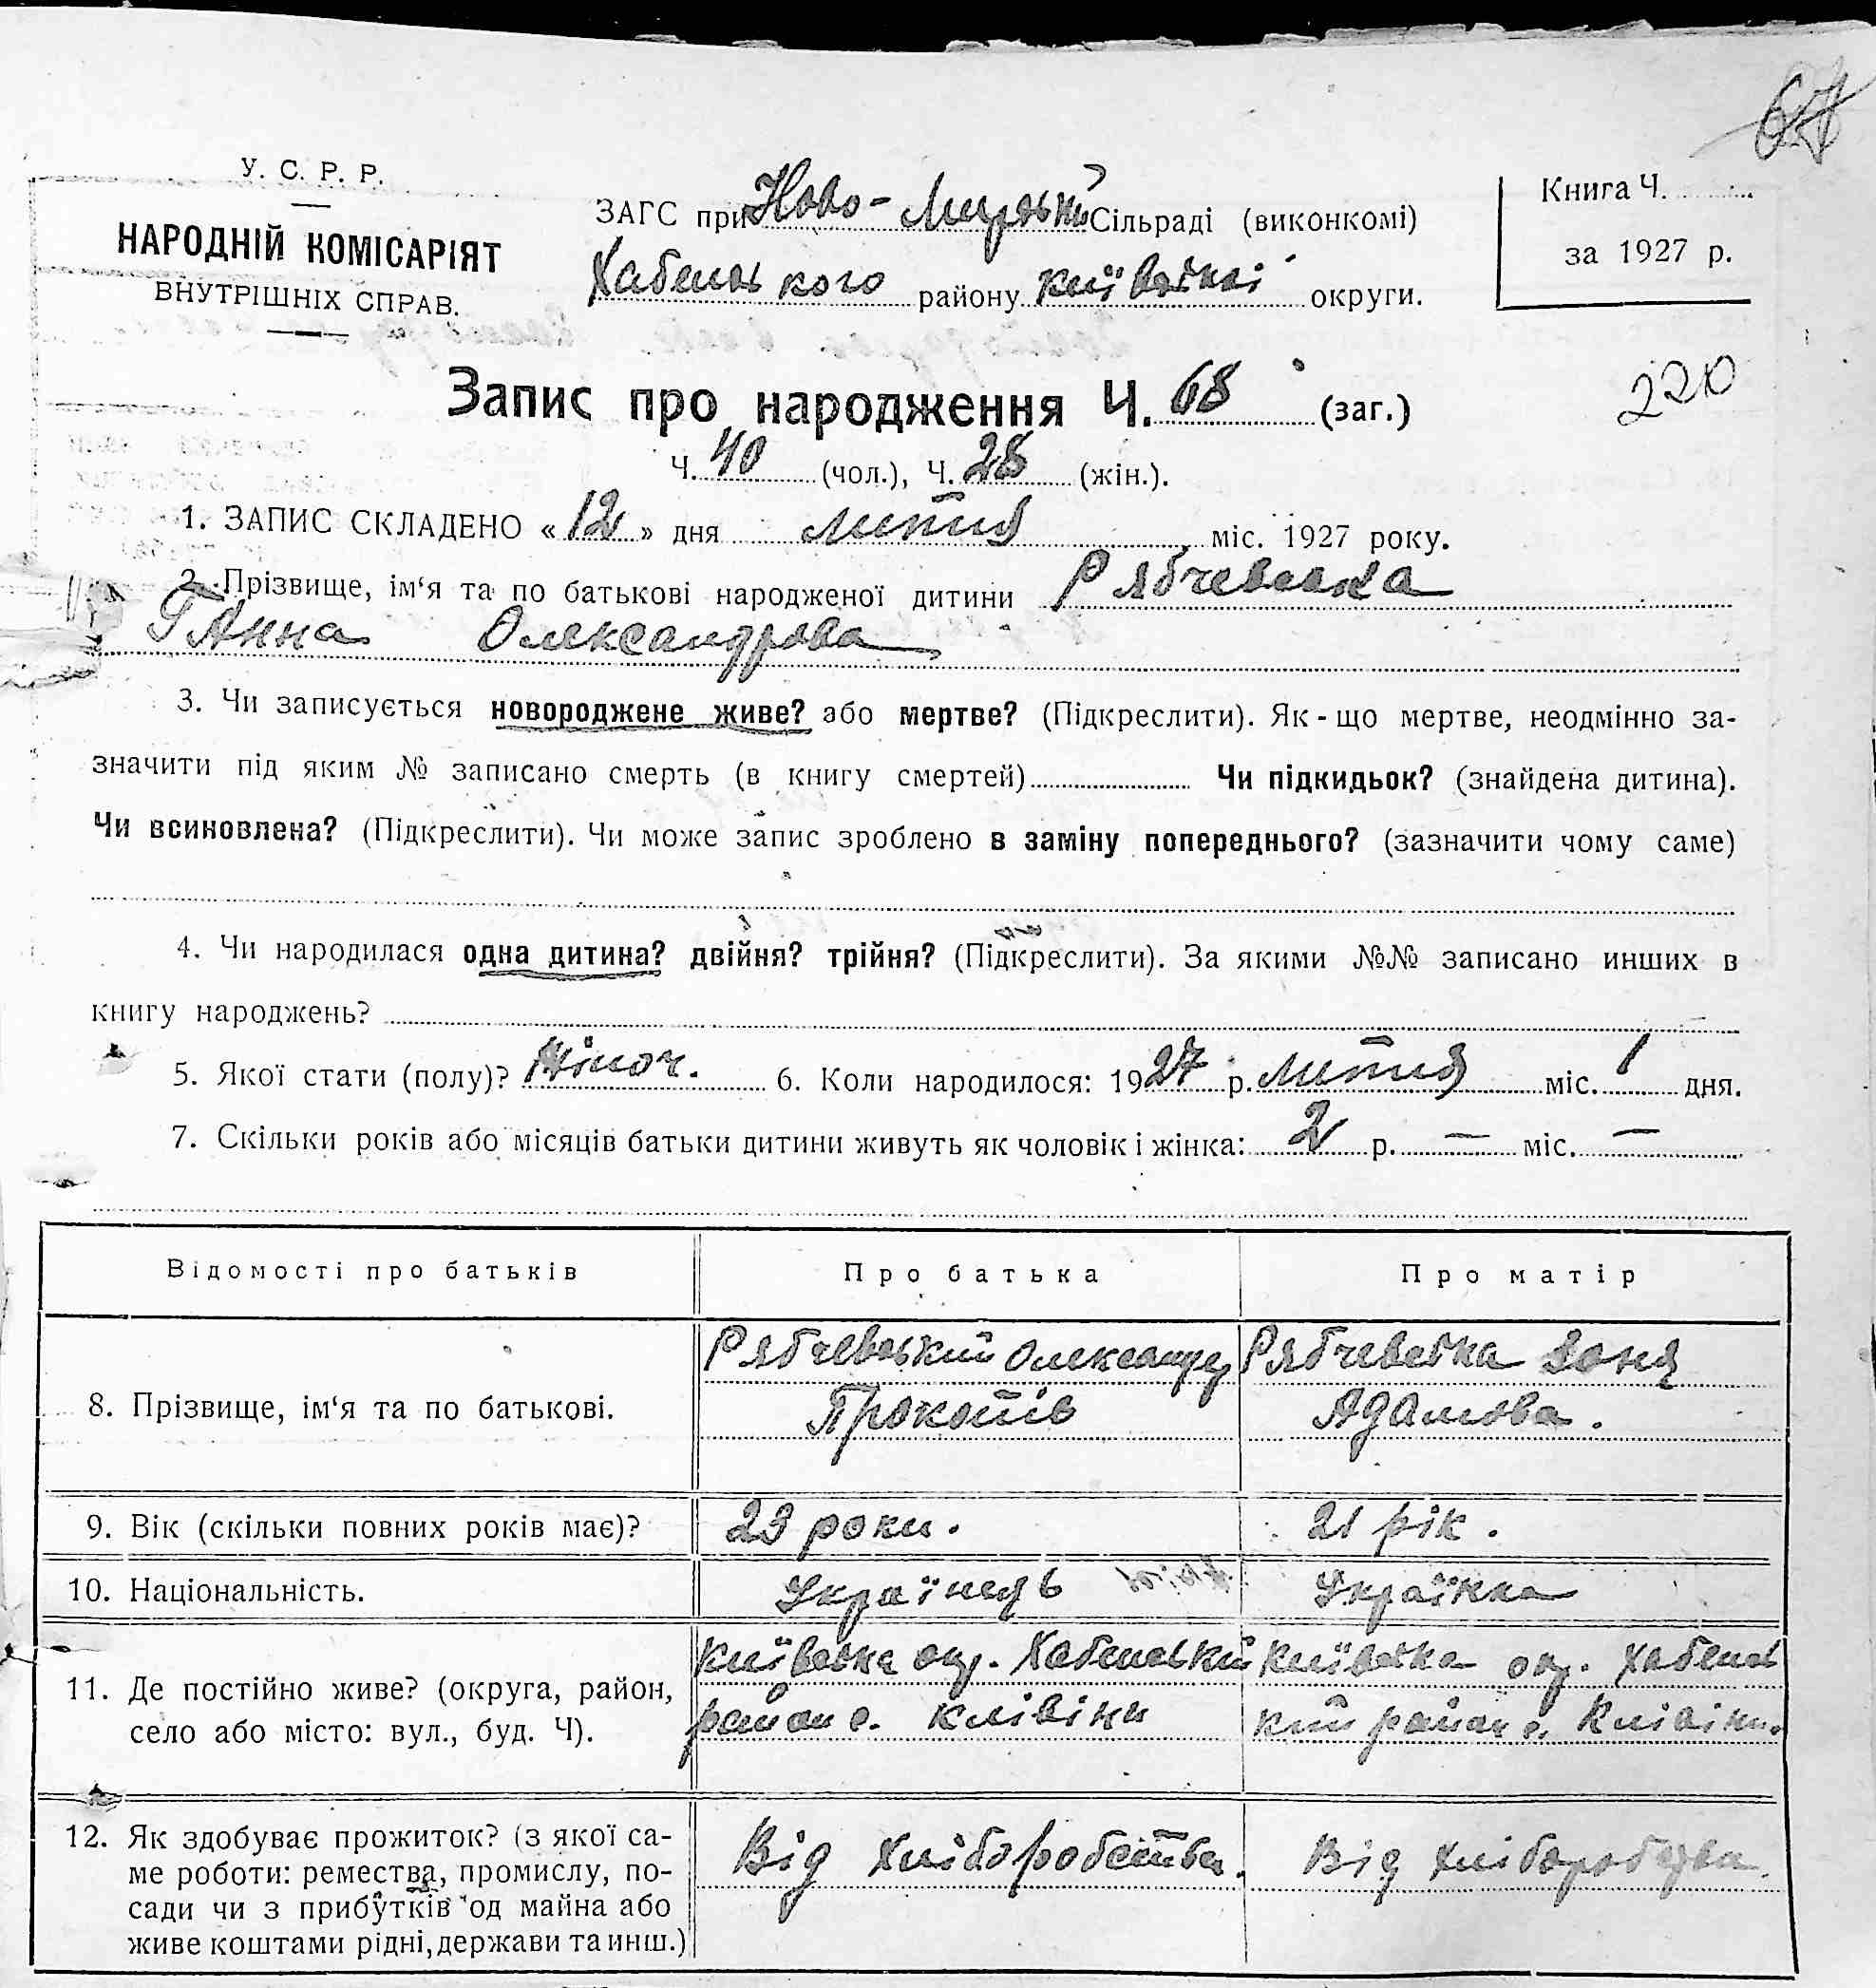 67
У. С. Р. Р.
НАРОДНІЙ КОМІСАРІЯТ
ВНУТРІШНІХ СПРАВ.
ЗАГС при Ново-Мирській Сільраді (виконкомі)
Хабенського району Київської округи.
Книга Ч.
за 1927 р.
Запис про народження Ч. 68 (заг.)
220
Ч. 40 (чол.), Ч. 28 (жін.).
1. ЗАПИС СКЛАДЕНО «12» дня лютия міс. 1927 року.
2. Прізвище, ім‘я та по батькові народженої дитини Рябчевська
Ганна Олександрова
3. Чи записується новороджене живе? або мертве? (Підкреслити). Як-що мертве, неодмінно за-
значити під яким № записано смерть (в книгу смертей) Чи підкидьок? (знайдена дитина).
Чи всиновлена? (Підкреслити). Чи може запис зроблено в заміну попереднього? (зазначити чому саме)
4. Чи народилася одна дитина? двійня? трійня? (Підкреслити). За якими №№ записано инших в
книгу народжень?
5. Якої стати (полу)? Жіноч. 6. Коли народилося: 1927 р. лютия міс. 1 дня.
7. Скільки років або місяців батьки дитини живуть як чоловік і жінка: 2 р. — міс. —
Відомості про батьків Про батька Про матір
8. Прізвище, ім‘я та по батькові.
Рябчевський Олександр
Прокопів
Рябчевська Зоня
Адамова.
9. Вік (скільки повних років має)? 23 роки. 21 рік.
10. Національність. Українець Українка
11. Де постійно живе? (округа, район,
село або місто: вул., буд. Ч).
Київська окр. Хабенський
район с. Клівіни
Київська окр. Хабенсь
кий район с. Клівіни.
12. Як здобуває прожиток? (з якої са-
ме роботи: ремества, промислу, по-
сади чи з прибутків од майна або
живе коштами рідні, держави та инш.)
Від хліборобства.
Від хліборобства.